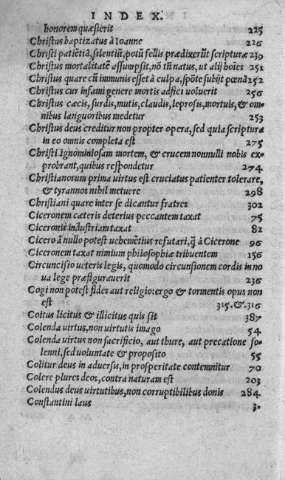 INDEX.
honorem quæsierit 225
Christus baptizatus à Ioanne 226
Christi patiētiā, silentiū, potū fellis prædixerūt scripturæ 239
Christus mortalitatē assumpsit, nō tū natus, ut alij hoīes 251
Christus quare cū immunis esset à culpa, spōte subijt pœnā 252
Christus cur infami genere mortis adfici uoluerit 256
Christus cæcis, surdis, mutis, claudis, leprosis, mortuis, & om
nibus languoribus medetur 253
Christus deus creditur non propter opera, sed quia scriptura
in eo omnis completa est 275
Christi ignominiosam mortem, & crucem nonnulli nobis ex
probrant, quibus respondetur 274
Christianorum prima uirtus est cruciatus patienter tolerare,
& tyrannos nihil metuere 298
Christiani quare inter se dicantur fratres 302
Ciceronem cæteris deterius peccantem taxat 75
Ciceronis industriam taxat 82
Cicero à nullo potest uehemētius refutari, q̄ à Cicerone 96
Ciceronem taxat nimium philosophiæ tribuentem 156
Circuncisio ueteris legis, quomodo circunsionem cordis in no
ua lege præfigurauerit 236
Cogi non potest fides aut religio: ergo & tormentis opus non
est 315. & .316
Coitus licitus & illicitus quis sit 387
Colenda uirtus, non uirtutis imago 54
Colenda uirtus non sacrificio, aut thure, aut precatione so-
lenni, sed uoluntate & proposito 55
Colitur deus in aduersis, in prosperitate contemnitur 70
Colere plures deos, contra naturam est 203
Colendus deus uirtutibus, non corruptibilibus donis 284
Constantini laus 3.